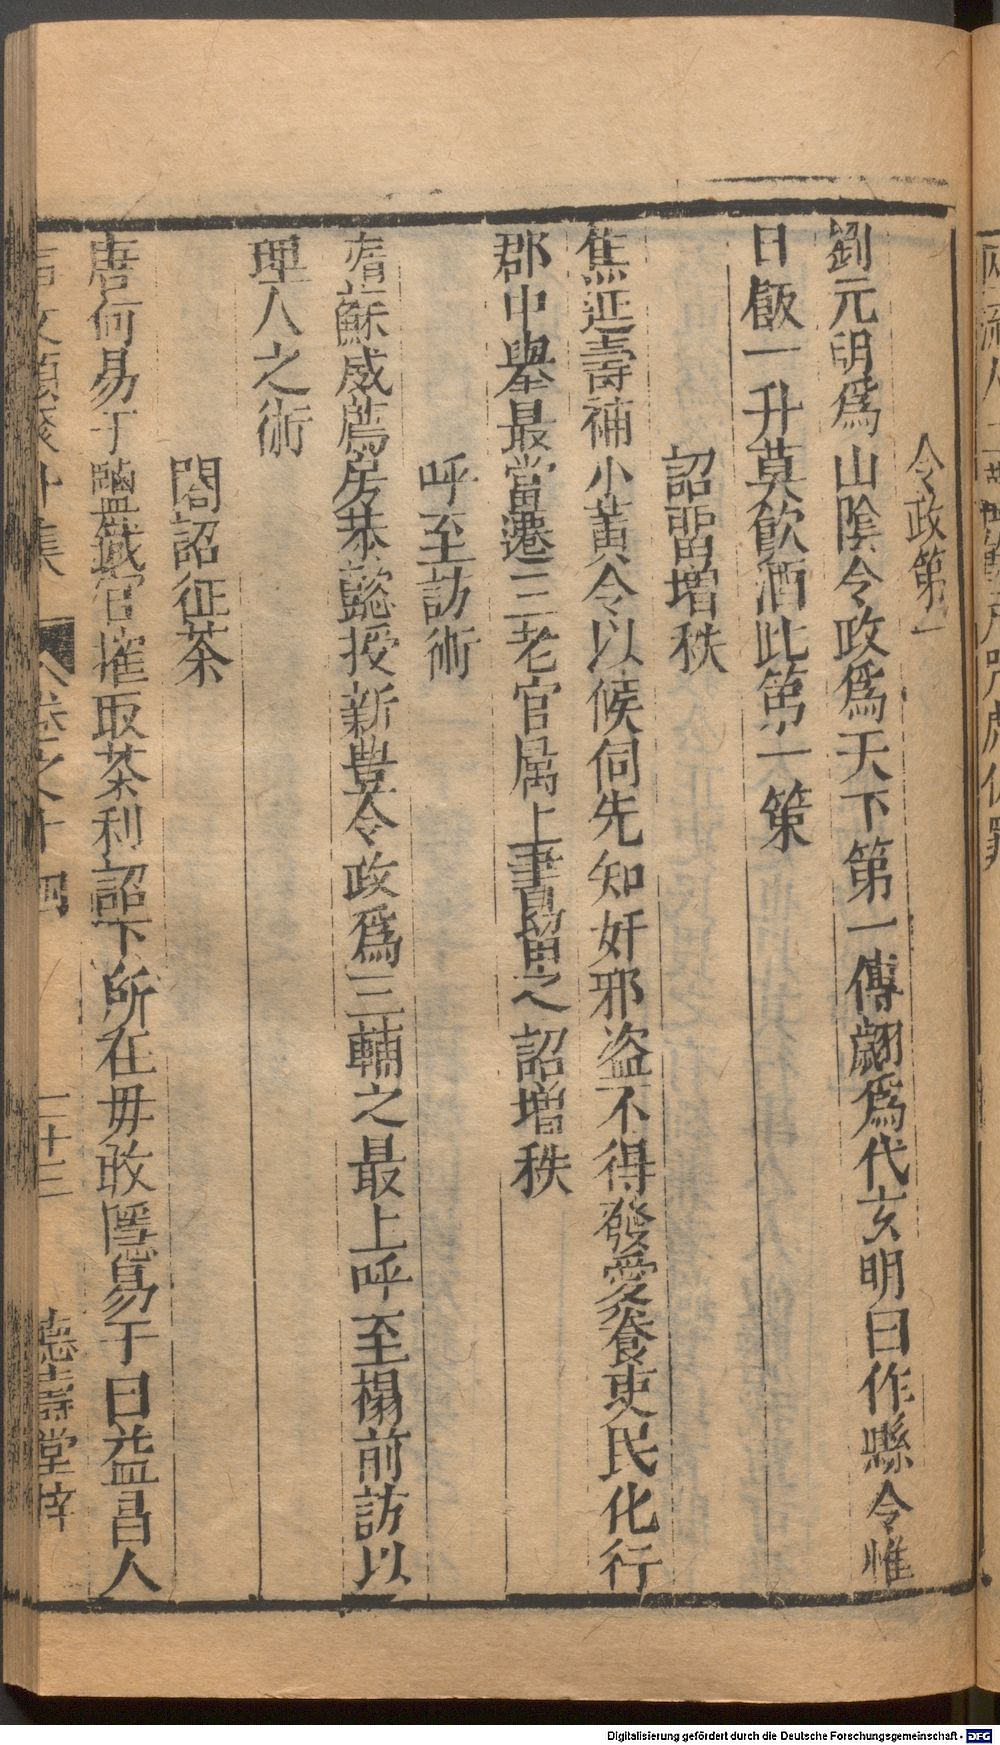 令政第一
劉元明爲山陰令政爲天下第一傅翽爲代玄明曰作縣令惟
日飯一升莫飲酒此第一策
詔畱增秩
焦延壽補小黃令以候伺先知奸邪盗不得發愛養吏民化行
郡中舉最當遷三老官属上書畱之詔增秩
呼至訪術
隋蘇威薦房恭懿授新豊令政爲三輔之最上呼至榻前訪以
理人之術
閣詔征茶
唐何易于鹽鐵官搉取茶利詔下所在毋敢隱易于曰益昌人
卷之十四
二十三
德壽堂梓
Digitalisierung gefördert durch die Deutsche Forschungsgemeinschaft - DFG